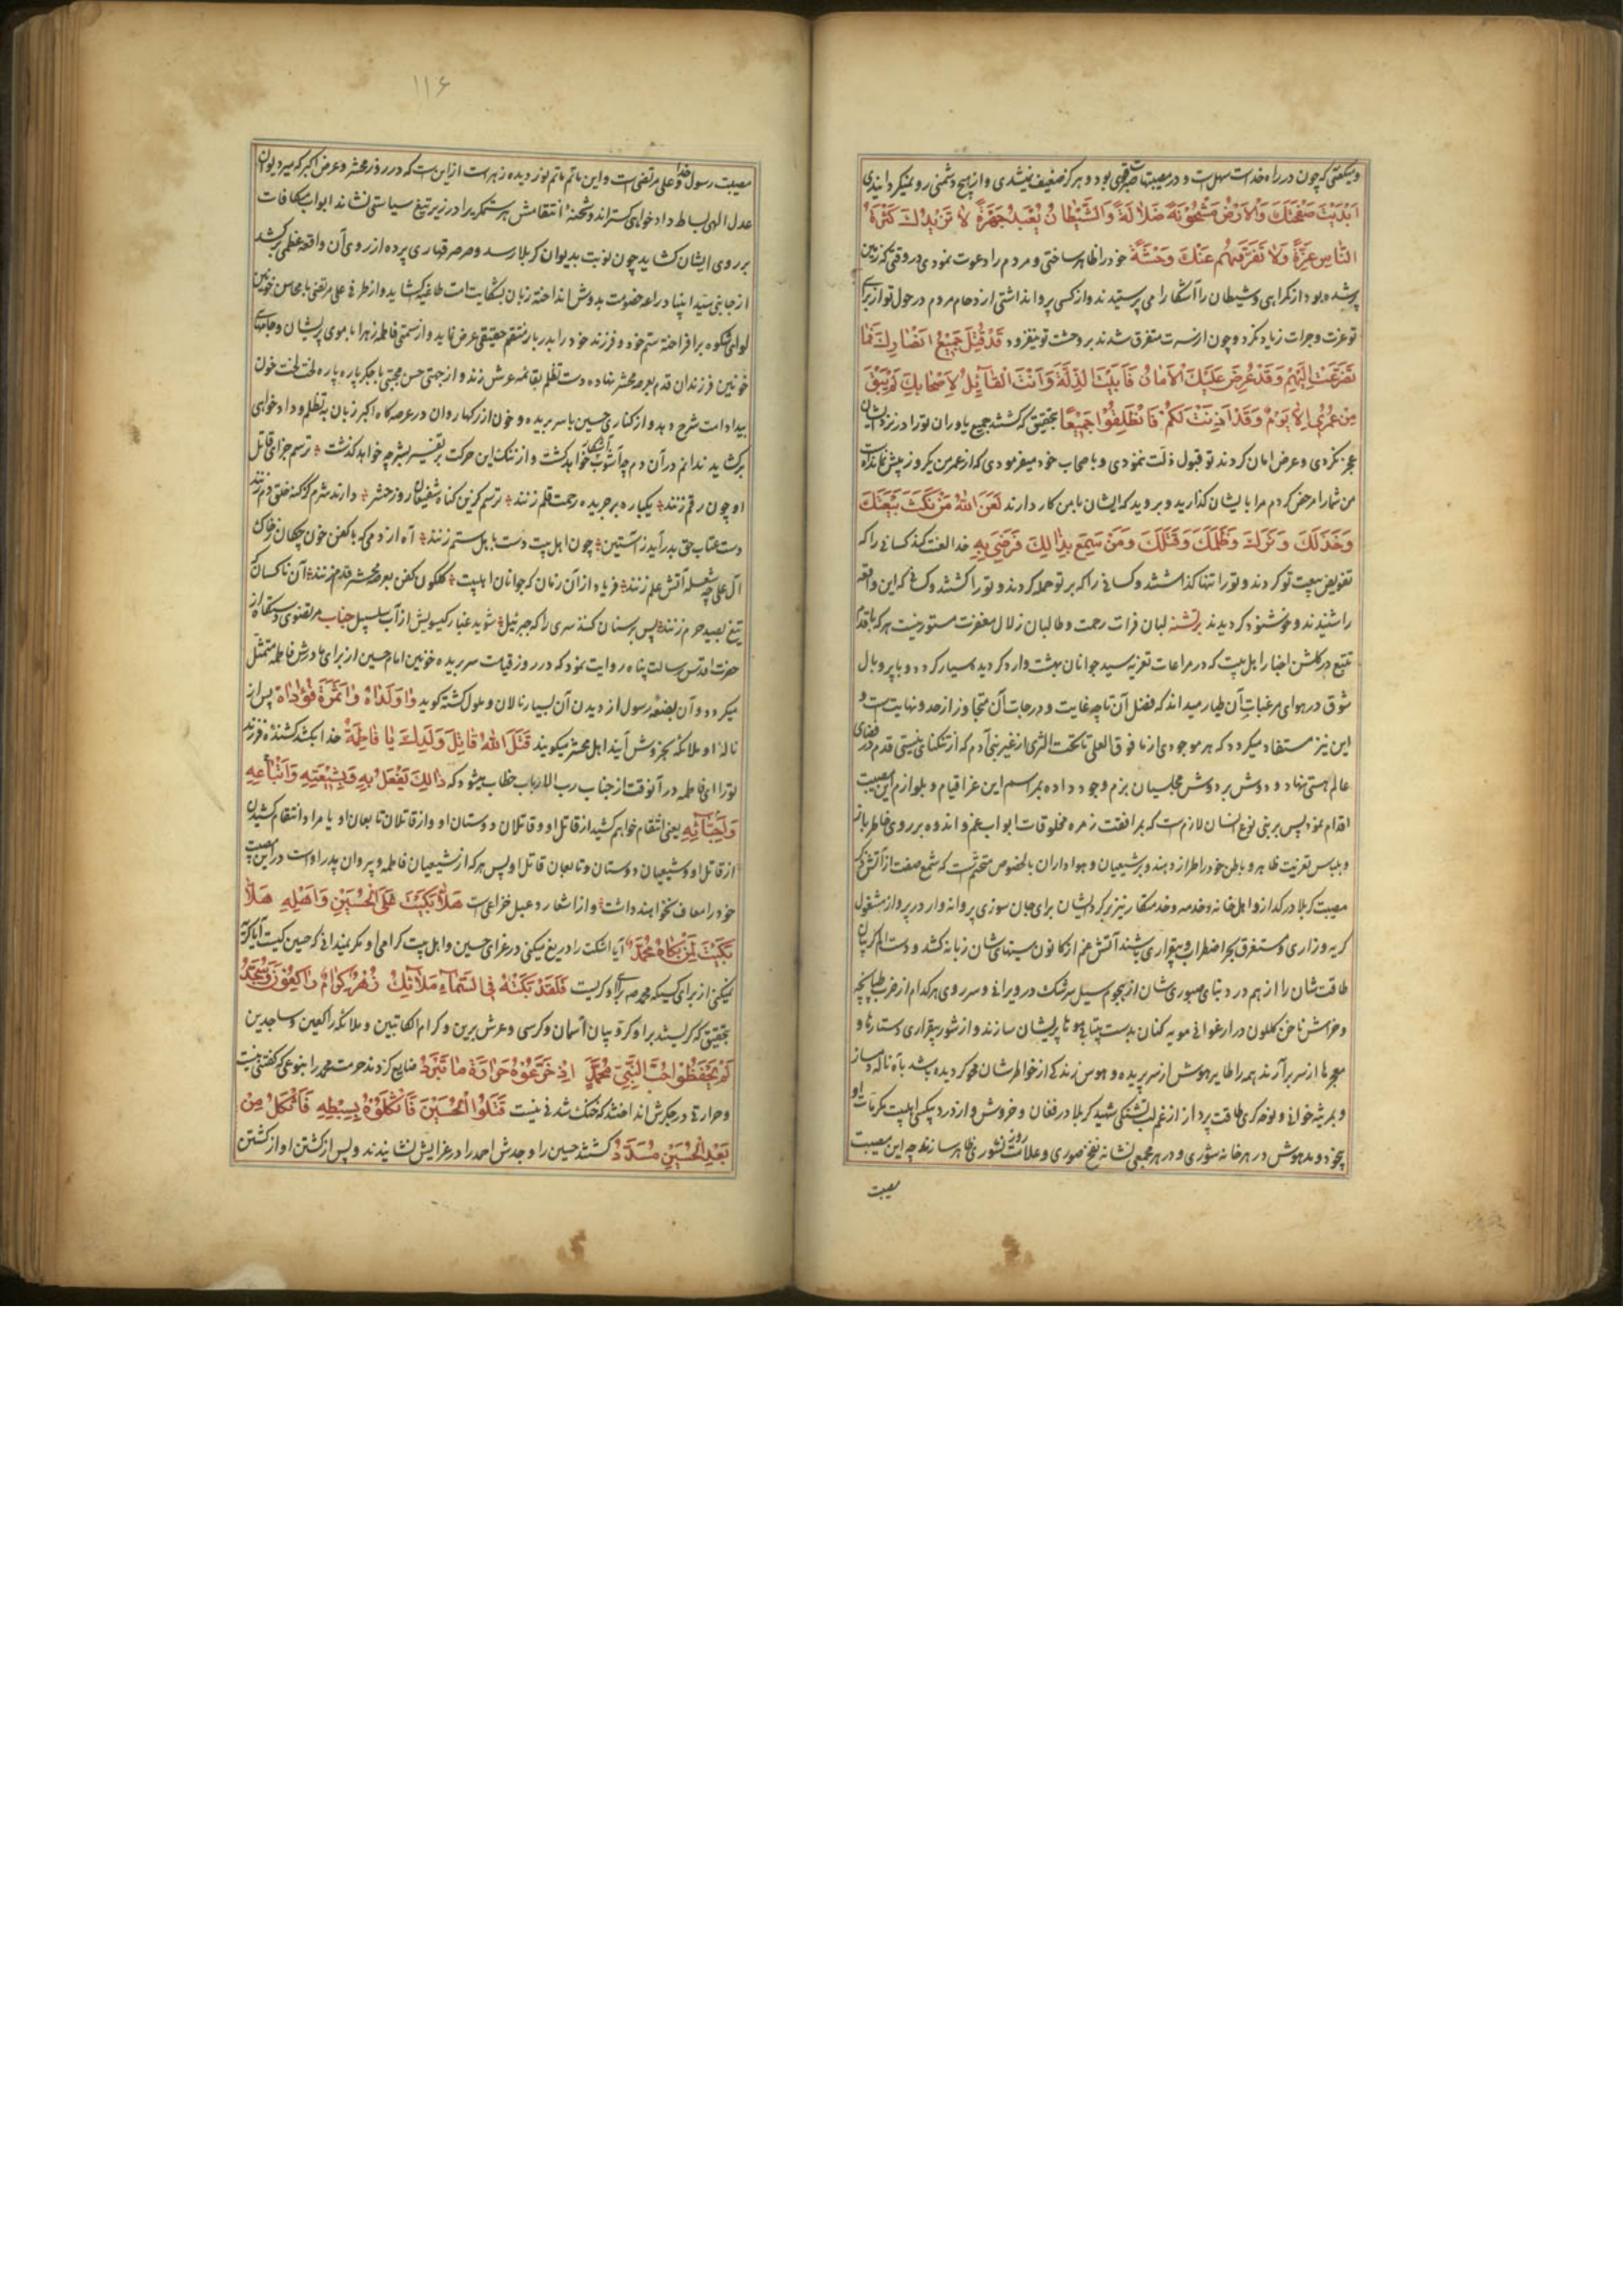 و میگفتی که چون در راه خداست سهل است و در مصیبتها صبر قوی بود و هرگز ضعیف نمیشدی و از هیچ دشمنی رو نمیگردانیدی
اَبْدَیْتَ صَفْحَتَكَ وَالْاَرْضُ مَشْحُونَةٌ ضَلالَةً وَالشَّیْطانُ یُعْبَدُ جَهْرَةً لا تَزیدُكَ كَثْرَةُ
النّاسِ عِزَّةً وَلا تَفَرُّقُهُمْ عَنْكَ وَحْشَةً خود را ظاهر ساختی و مردم را دعوت نمودی در وقتی که زمین
پر شده بود از گمراهی و شیطان را آشکارا می پرستیدند و از کسی پروا نداشتی ازدحام مردم در حول تو از برای
تو عزت و جرات زیاد نکرد و چون از سرت متفرق شدند بر وحشت تو نیفزود قَدْ قُتِلَ جَمیعُ اَنْصارِكَ فَما
تَضَرَّعْتَ اِلَیْهِمْ وَقَدْ عُرِضَ عَلَیْكَ الْاَمانُ فَاَبَیْتَ الذِّلَّةَ وَاَنْتَ الْقآئِلُ لِاَصْحابِكَ لَمْ یَبْقَ
مِنْ عُمْری اِلّا یَوْمٌ وَقَدْ اَذِنْتُ لَكُمْ فَانْطَلِقُوا جَمیعًا بتحقیق که کشتند جمیع یاوران تو را و در نزد ایشان
عجز نکردی و عرض امان کردند تو قبول ذلت ننمودی و باصحاب خود میفرمودی که از عمر من یکروز بیش نمانده است
من شما را مرخص کردم مرا بایشان گذارید و بروید که ایشان با من کار دارند لَعَنَ اللهُ مَنْ نَكَثَ بَیْعَتَكَ
وَخَذَلَكَ وَتَرَكَكَ وَظَلَمَكَ وَقَتَلَكَ وَمَنْ سَمِعَ بِذالِكَ فَرَضِیَ بِهِ خدا لعنت کند کسانی را که
تفویض بیعت تو کردند و تو را تنها گذاشتند و کسانی را که بر تو حمله کردند و تو را کشتند و کسانی که این واقعه
را شنیدند و خوشنود گردیدند بر تشنه لبان فرات رحمت و طالبان زلال مغفرت مستور نیست هر که باقدام
تتبع در گلشن اخبار اهل بیت که در مراعات تعزیه سید جوانان بهشت وارد گردیده سیار گردد و با پر و بال
شوق در هوای مرغبات آن طیار میداند که فضل آن تا چه غایت و درجات آن متجاوز از حد و نهایت است و
این نیز مستفاد میگردد که هر موجودی از ما فوق العلی تا تحت الثری از غیر بنی آدم که از تنگنای نیستی قدم در فضای
عالم هستی نهاد و دوش بر دوش مجلسیان بزم وجود داده بمراسم این عزا قیام و بلوازم این مصیبت
اقدام نمود پس بر بنی نوع انسان لازم است که بمرافقت زمره مخلوقات ابواب غم و اندوه بر روی خاطر باز
و بلباس تعزیت ظاهر و باطن خود را طراز دهند و بر شیعیان و هواداران بالخصوص متحتم است که شمع صفت از آتش
مصیبت کربلا در گداز و اهل خانه و خدمه و خدمتکار نیز بر گرد ایشان برای جان سوزی پروانه وار در پرواز مشغول
گریه و زاری و مستغرق بحر اضطراب و بیقراری باشند آتش غم از کانون سینهای شان زبانه کشد و دست الم گریبان
طاقت شان را از هم درد بنای صبوری شان از هجوم سیل سرشک در ویرانی و سر روی هر کدام از ضرب طپانچه
و خراش ناخن گلگون در ارغوانی مویه کنان بدست بیتابی موها پریشان سازند و از شور بیقراری دستارها و
معجرها از سر برآرند همه را طایر هوش از سر پریده و هوس زندگی از خواطر شان محو گردیده باشد با آه و ناله دمساز
و بمرثیه خوانی و نوحه گری طاقت پرداز از غم لب تشنگی شهید کربلا در فغان و خروش و از درد بیکسی اهلبیت مکرمات او
بیخود و مدهوش در هر خانه شوری و در هر مجمعی نشانه نفخ صوری و علامت روز نشوری ظاهر سازند چه این مصیبت
مصیبت
۱۱۶
مصیبت رسول خدا و علی مرتضی است و این ماتم ماتم نور دیده زهراست از این است که در روز محشر و عرض اکبر که میر دیوان
عدل الهی بساط دادخواهی گستراند و شحنهٔ انتقامش هر ستمگر را در زیر تیغ سیاستی نشاند ابواب مکافات
بر روی ایشان گشاید چون نوبت بدیوان کربلا رسد و صرصر قهاری پرده از روی آن واقعه عظمی برکشد
از جانبی سید انبیا دراعه خصومت بدوش انداخته زبان بشکایت امت طاغیه گشاید و از طرفی علی مرتضی با محاسن خونین
لوای شکوه برافراخته ستم خود و فرزند خود را بدربار منتقم حقیقی عرض نماید و از سمتی فاطمه زهرا با موی پریشان و جامهای
خونین فرزندان قدم بعرصه محشر نهاده دست تظلم بقائمه عرش زند و از جهتی حسن مجتبی با جگر پاره پاره لخت لخت خون
بیداد امت شرح دهد و از کناری حسین با سر بریده و خون از رگها روان در عرصه گاه اکبر زبان بتظلم و دادخواهی
برگشاید ندانم در آن دم چه آشوب آشکار خواهد گشت و از ننگ این حرکت بر نفس بشر چه خواهد گذشت ترسم جزای قاتل
او چون رقم زنند یکباره بر جریده رحمت قلم زنند ترسم کزین گناه شفیعان روز حشر دارند شرم کز گنه خلق دم زنند
دست عتاب حق بدر آید ز آستین چون اهل بیت دست باهل ستم زنند آه از دمی که با کفن خون چکان ز خاک
آل علی چو شعله آتش علم زنند فریاد از آن زمان که جوانان اهلبیت گلگون کفن بعرصه محشر قدم زنند آن ناکسان که
تیغ بصید حرم زنند پس بر سنان کنند سری را که جبرئیل شوید غبار گیسویش از آب سلسبیل جناب مرتضوی دستگاه از
حضرت اقدس رسالت پناه روایت نمود که در روز قیامت سر بریده خونین امام حسین از برای مادرش فاطمه متمثل
میگردد و آن بضعه رسول از دیدن آن بسیار نالان و ملول گشته گوید وا وَلَداهُ وا ثَمَرَةَ فُؤاداهُ پس از
ناله او ملائکه بخروش آیند اهل محشر میگویند قَتَلَ اللهُ قاتِلَ وَلَدِكَ یا فاطِمَةُ خدا بکشد کشنده فرزند
تو را ای فاطمه در آنوقت از جناب رب الارباب خطاب میشود که ذالِكَ یُفْعَلُ بِهِ وَبِشیعَتِهِ وَاَتْباعِهِ
وَاَحِبّآئِهِ یعنی انتقام خواهم کشید از قاتل او و قاتلان دوستان او و از قاتلان تابعان او یا مراد انتقام کشیدن
از قاتل او و شیعیان و دوستان و تابعان قاتل او پس هر که از شیعیان فاطمه و پیروان پدر اوست در این مصیبت
خود را معاف نخواهند داشت و از اشعار دعبل خزاعی است هَلّا بَكَیْتَ عَلَی الْحُسَیْنِ وَاَهْلِهِ هَلّا
بَكَیْتَ لِمَنْ بَكاهُ مُحَمَّدٌ آیا اشکت را دریغ میکنی در عزای حسین و اهل بیت گرامی او مگر نمیدانی که حسین کیست آیا گریه
نمیکنی از برای کسیکه محمد ص برای او گریست فَلَقَدْ بَكَتْهُ فِی السَّمآءِ مَلآئِكُ زُهْرٌ كِرامٌ راكِعُونَ وَسُجَّدٌ
بتحقیق که گریستند بر او کروبیان آسمان و کرسی و عرش برین و کرام الکاتبین و ملائکه راکعین و ساجدین
لَمْ یَحْفَظُوا حُبَّ النَّبِیِّ مُحَمَّدٍ اِذْ جَرَّعُوهُ حَرارَةً ما تَبْرُدُ ضایع کردند حرمت محمد را بنوعی که گفتنی نیست
و حرارتی در جگرش انداختند که خنک شدنی نیست قَتَلُوا الْحُسَیْنَ فَاَثْكَلُوهُ بِسِبْطِهِ فَالثُّكْلُ مِنْ
بَعْدِ الْحُسَیْنِ مُبَدَّدٌ کشتند حسین را و جدش احمد را در عزایش نشانیدند و پس از کشتن او از کشتن